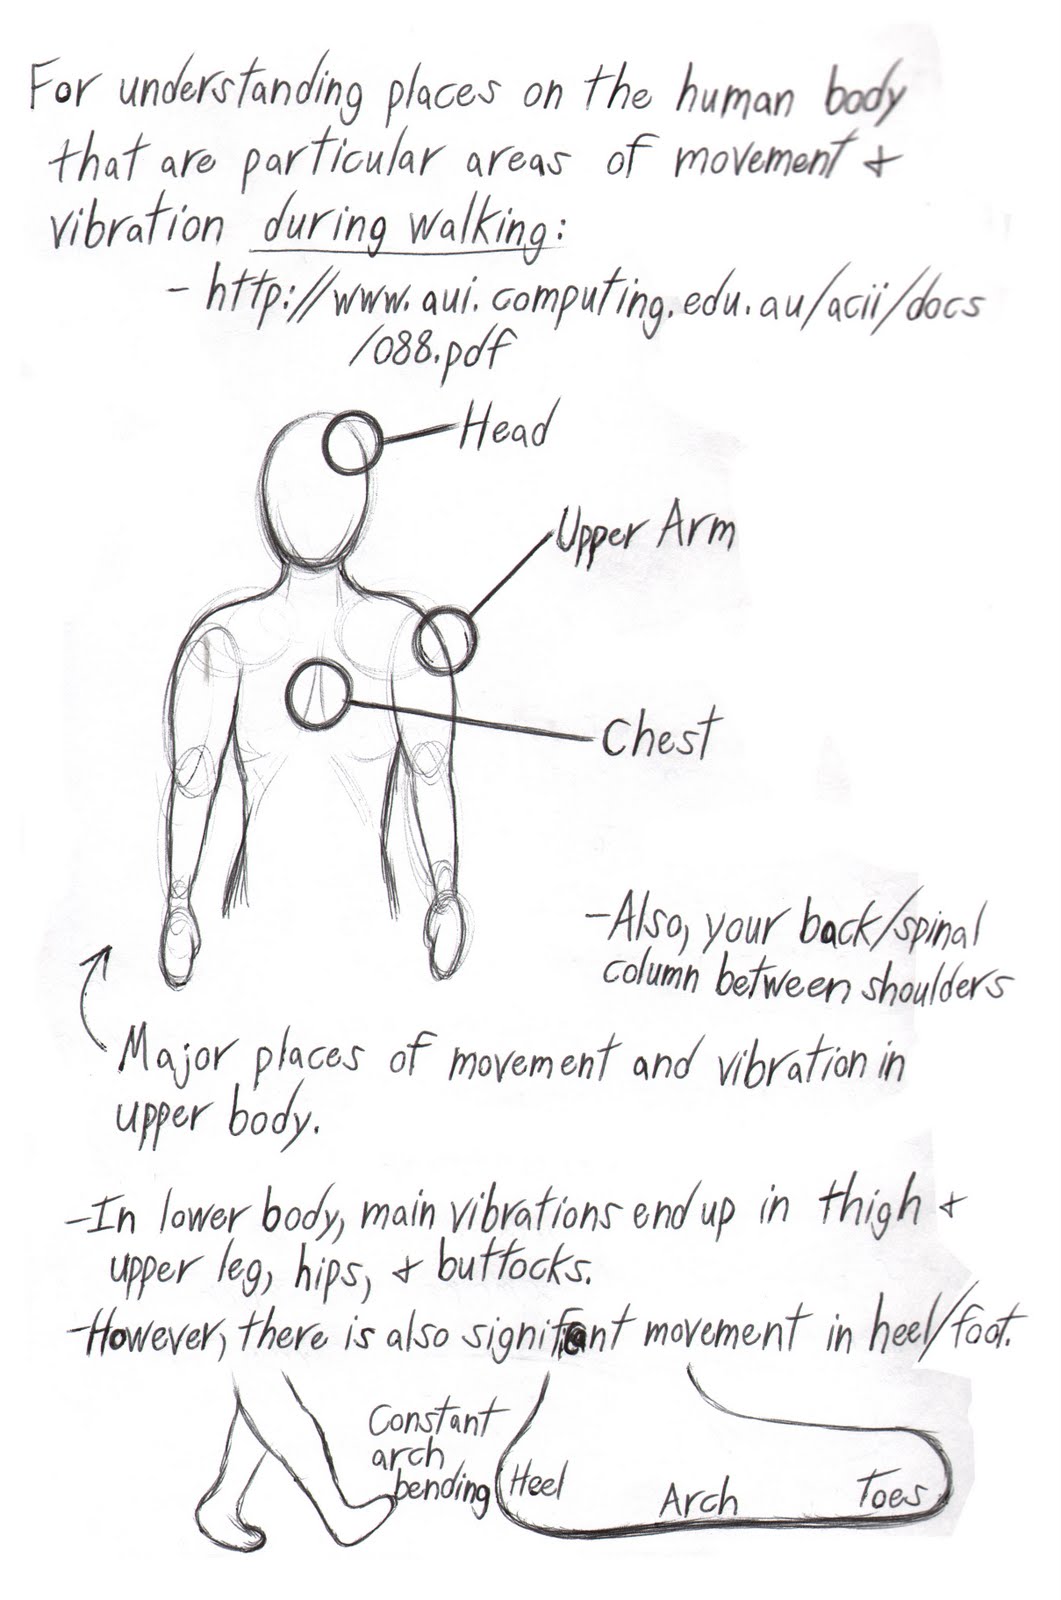 For understanding places on the human body
that are particular areas of movement +
vibration during walking:
- http://www.aui.computing.edu.au/acii/docs
/088.pdf
Head
Upper Arm
Chest
-Also, your back/spinal
column between shoulders
Major places of movement and vibration in
upper body.
-In lower body, main vibrations end up in thigh +
upper leg, hips, + buttocks.
-However, there is also movement in heel/foot.
Constant
arch
bending
Heel
Arch
Toes